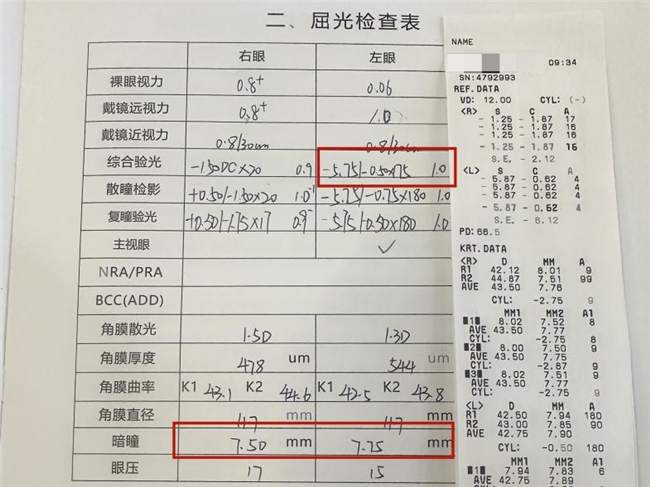 二、屈光检查表
右眼 左眼
裸眼视力 0.8⁺ 0.06
戴镜远视力 0.8⁺ 1.0
戴镜近视力 0.8/30cm 0.8/30cm
综合验光 -1.50DC×20 0.9 -5.75/-0.50×75 1.0
散瞳检影 +0.50/-1.50×20 1.0⁻ -5.75/-0.75×180 1.0
复瞳验光 +0.50/-1.75×17 0.9⁻ -5.75/-0.50×180 1.0
主视眼 ✓
NRA/PRA
BCC(ADD)
角膜散光 1.5D 1.3D
角膜厚度 478 um 544 um
角膜曲率 K1 43.1 K2 44.6 K1 42.5 K2 43.8
角膜直径 11.7 mm 11.7 mm
暗瞳 7.50 mm 7.75 mm
眼压 17 15
NAME
09:34
SN:4792993
REF.DATA
VD: 12.00 CYL: (-)
<R> S C A
- 1.25 - 1.87 17
- 1.25 - 1.87 16
- 1.25 - 1.87 16
- 1.25 - 1.87 16
S.E. - 2.12
<L> S C A
- 5.87 - 0.62 4
- 5.87 - 0.62 4
- 5.87 - 0.62 4
- 5.87 - 0.62 4
S.E. - 6.12
PD: 66.5
KRT.DATA
<R> D MM A
R1 42.12 8.01 9
R2 44.87 7.51 99
AVE 43.50 7.76
CYL: -2.75 9
MM1 MM2 A1
1 8.02 7.52 8
AVE 43.50 7.77
CYL: -2.75 8
2 8.00 7.50 9
AVE 43.50 7.75
CYL: -2.87 9
3 8.02 7.51 9
AVE 43.50 7.77
CYL: -2.75 9
<L> D MM A
R1 42.50 7.94 180
R2 43.00 7.85 90
AVE 42.75 7.90
CYL: -0.50 180
MM1 MM2 A1
1 7.94 7.83 6
AVE 42.75 7.89